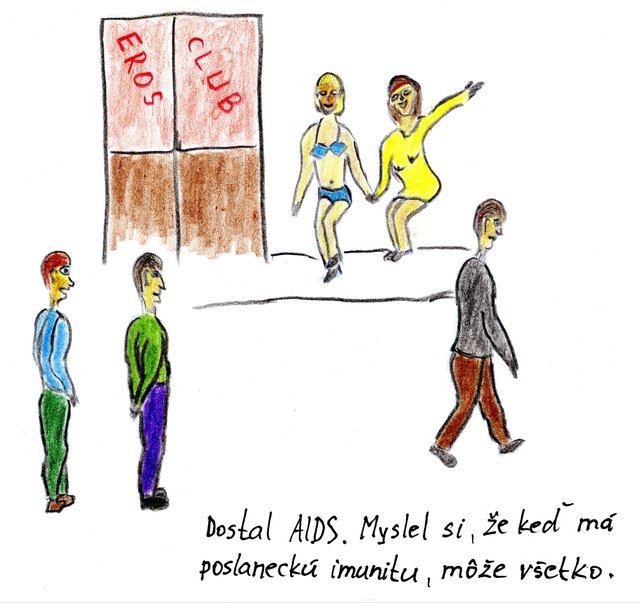 EROS
CLUB
Dostal AIDS. Myslel si, že keď má
poslaneckú imunitu, môže všetko.